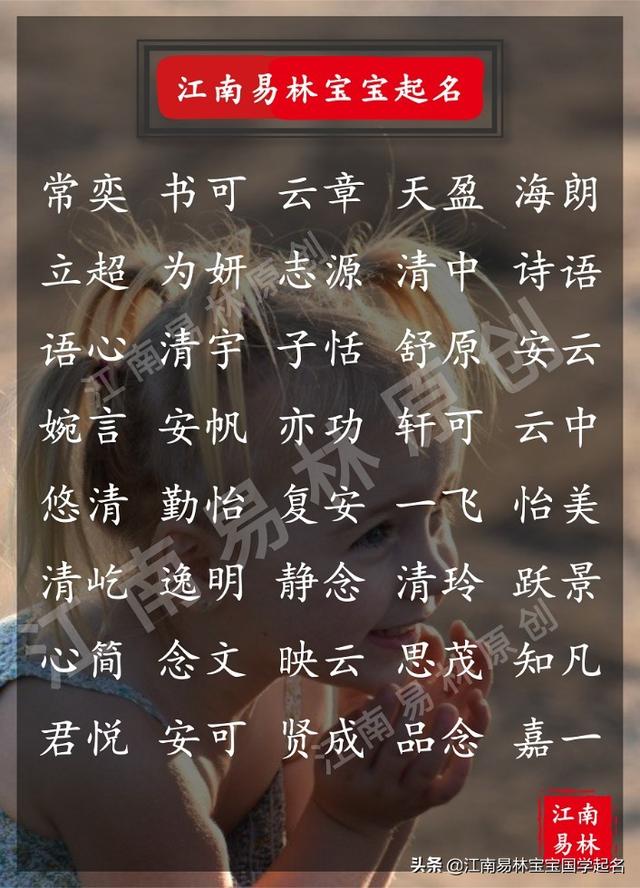 江南易林宝宝起名
常奕 书可 云章 天盈 海朗
立超 为妍 志源 清中 诗语
语心 清宇 子恬 舒原 安云
婉言 安帆 亦功 轩可 云中
悠清 勤怡 复安 一飞 怡美
清屹 逸明 静念 清玲 跃景
心简 念文 映云 思茂 知凡
君悦 安可 贤成 品念 嘉一
江南易林原创
江南易林原创
江南易林原创
江南
易林
头条 @江南易林宝宝国学起名